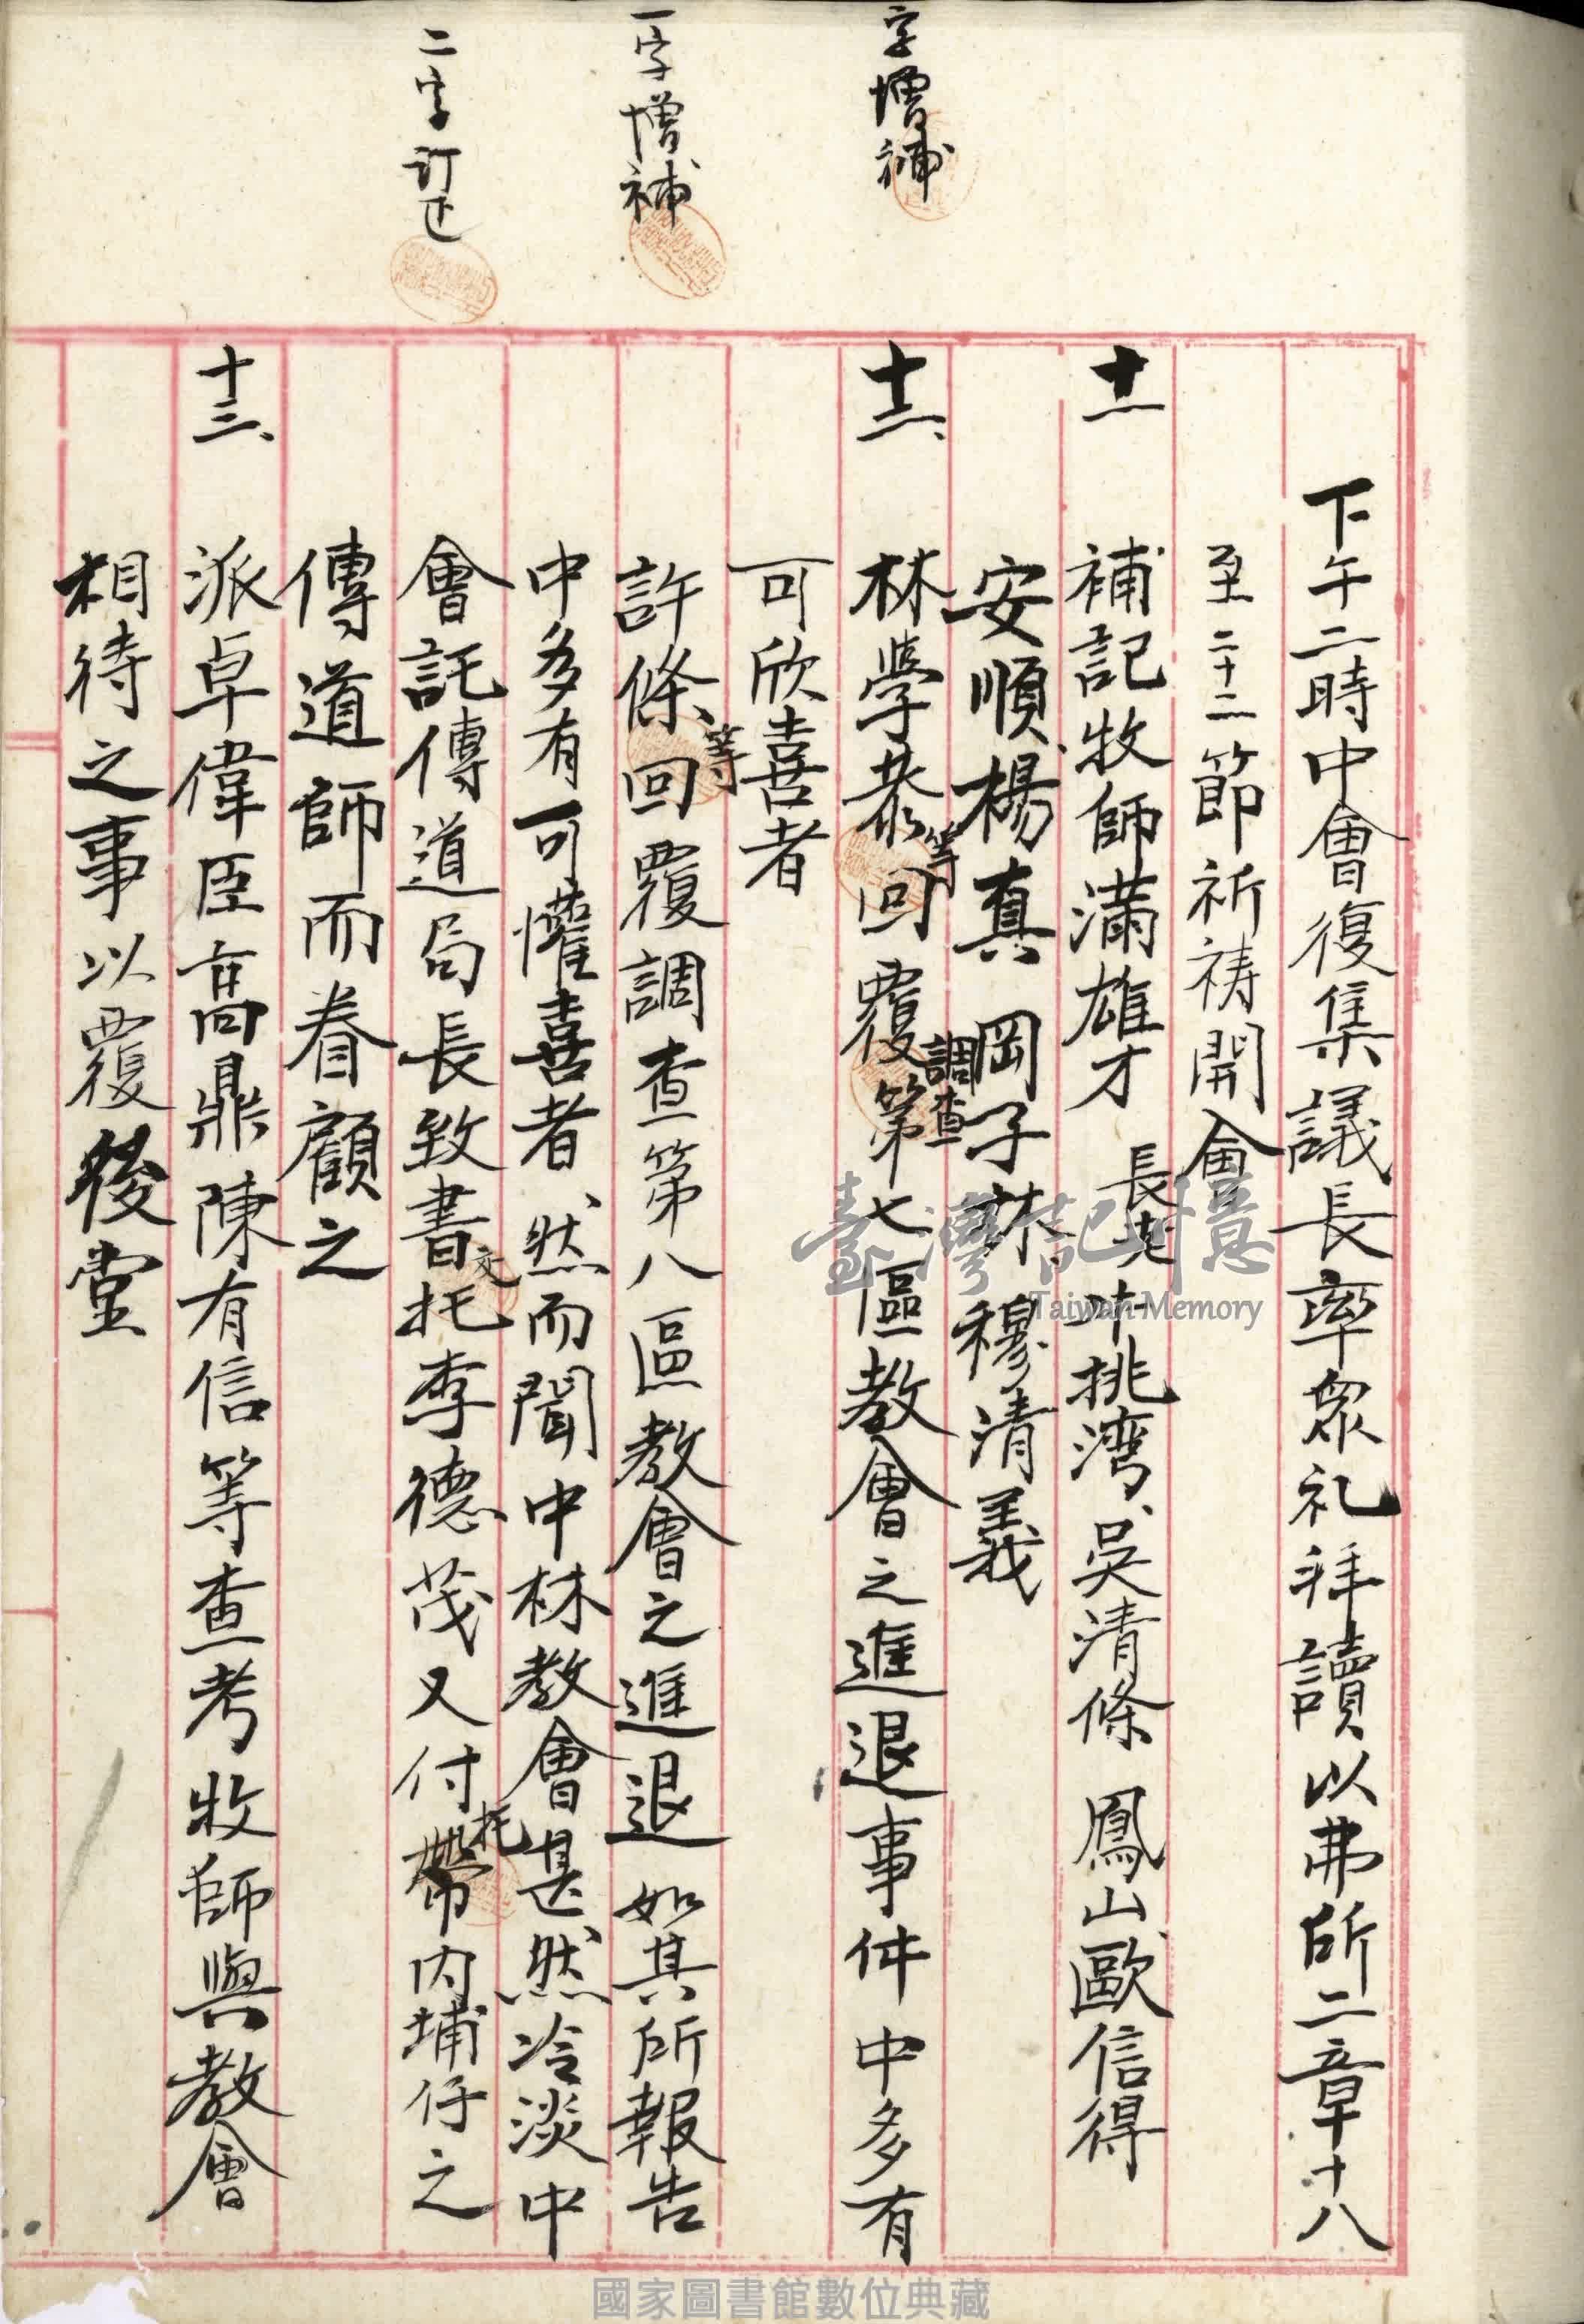 字增補
一字增補
二字訂正
下午二時中會復集議長率眾礼拜讀以弗所二章十八
至二十二節祈祷開會
十一 補記牧師滿雄才 長老 叶挑湾、吳清條 鳳山、歐信得
安順、楊真 岡子林 穆清義
十二、林學恭等回覆調查第七區教會之進退事件中多有
可欣喜者
許條等回覆調查第八區教會之進退如其所報告
中多有可懽喜者、然而聞中林教會甚然冷淡中
會託傳道局長致書文托李德茂又付托帶內埔仔之
傳道師而眷顧之
十三、派卓偉臣高鼎陳有信等查考牧師與教會
相待之事以覆後堂
臺灣記憶
Taiwan Memory
國家圖書館數位典藏